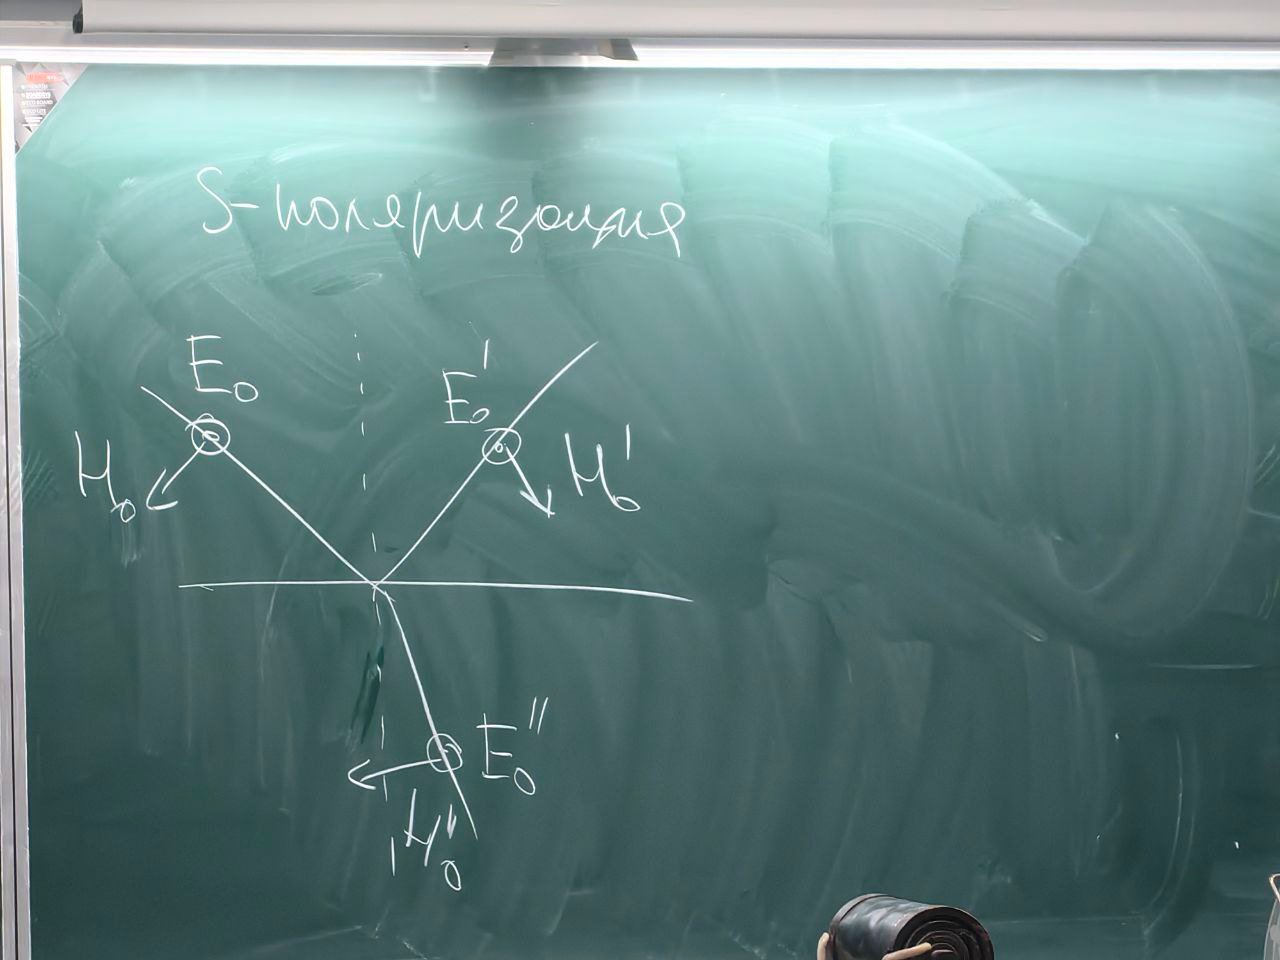 S-поляризация
E₀
E₀'
H₀
H₀'
E₀''
H₀''